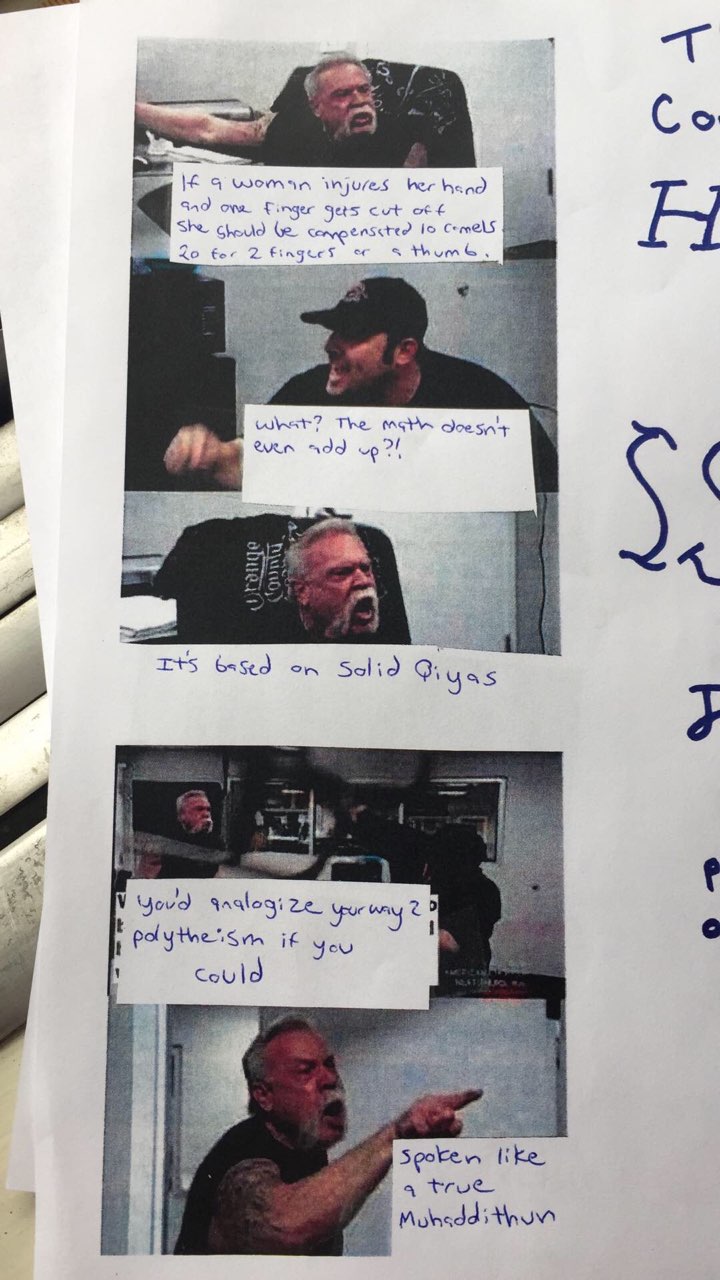 If a woman injures her hand
and one finger gets cut off
she should be compensated 10 camels
20 for 2 fingers or a thumb.
What? The math doesn't
even add up?!
It's based on Solid Qiyas
you'd analogize your way 2
polytheism if you
could
Spoken like
a true
Muhaddithun
T
Co
H